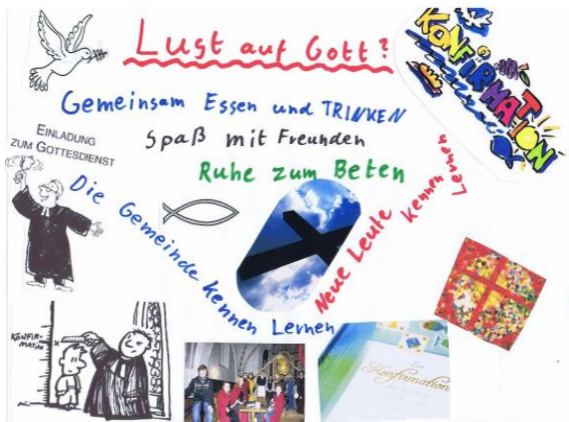 Lust auf Gott?
KONFIRMATION
Gemeinsam Essen und TRINKEN
Spaß mit Freunden
EINLADUNG
ZUM GOTTESDIENST
Ruhe zum Beten
Die Gemeinde kennen Lernen
Neue Leute kennen Lernen
KONFIR-
MATION
Konfirmation